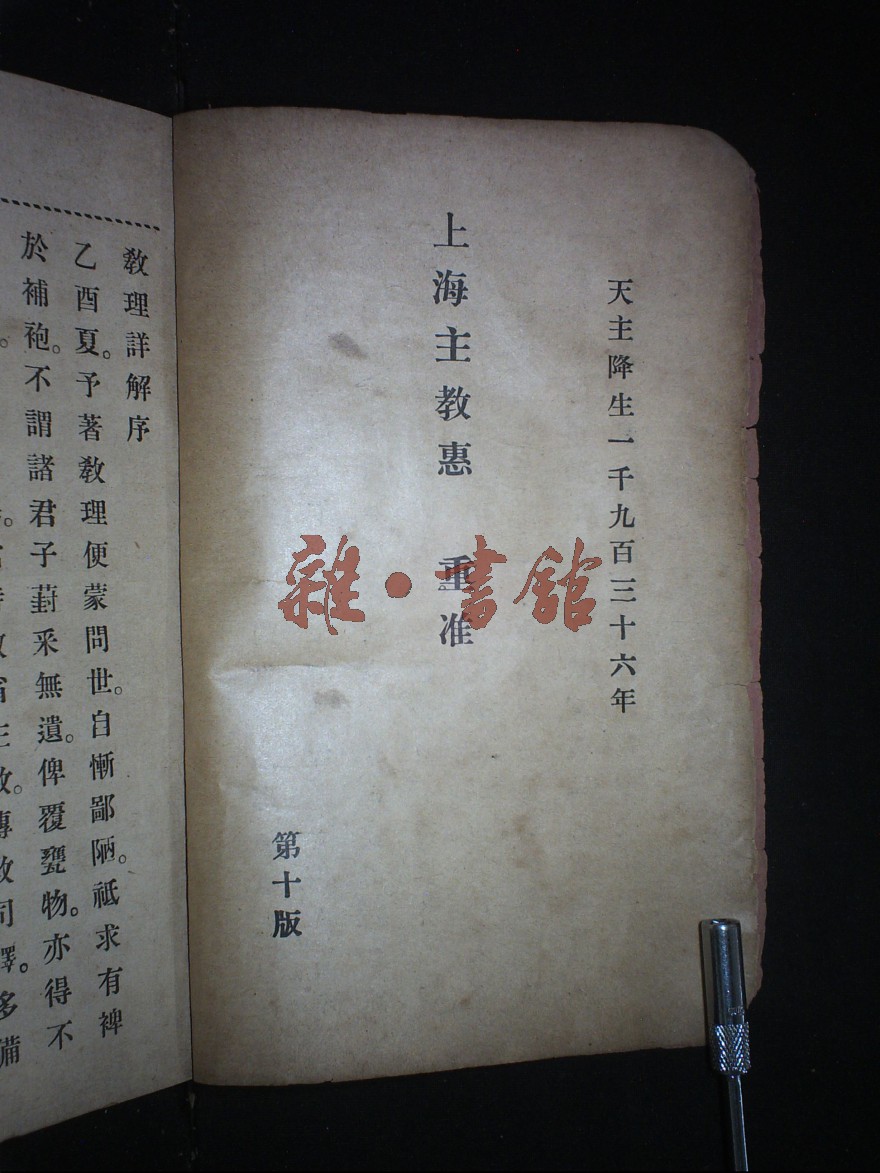 天主降生一千九百三十六年
上海主教惠 重准
第十版
雜·書館
教理詳解序
乙酉夏。予著教理便蒙問世。自慚鄙陋。祗求有裨
於補袍。不謂諸君子葑采無遺。俾覆甕物。亦得不